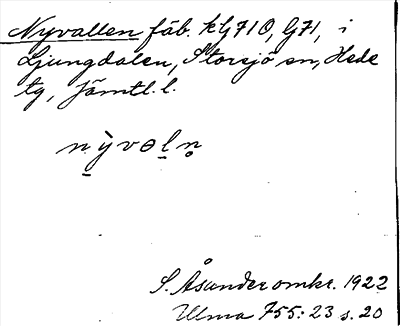 Nyvallen fäb. kG710, G71, i
Ljungdalen, Storsjö sn, Hede
tg, Jämtl. l.
nỳvəḷṇ
S. Åsander omkr. 1922
Ulma 755:23 s. 20